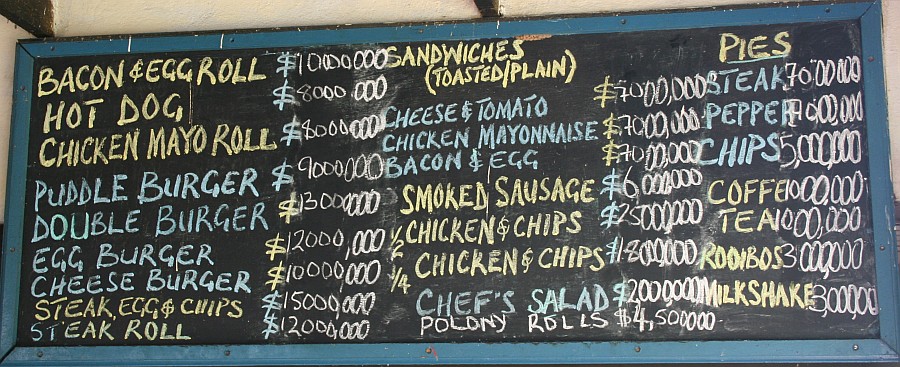 BACON & EGG ROLL $10000000
HOT DOG $8000.000
CHICKEN MAYO ROLL $8000000
PUDDLE BURGER $9000000
DOUBLE BURGER $13000000
EGG BURGER $12000,000
CHEESE BURGER $10000,000
STEAK, EGG & CHIPS $15000,000
STEAK ROLL $12000,000
SANDWICHES
(TOASTED/PLAIN)
CHEESE & TOMATO $7000,000
CHICKEN MAYONNAISE $7000,000
BACON & EGG $7000,000
SMOKED SAUSAGE $6000,000
1/2 CHICKEN & CHIPS $25000,000
1/4 CHICKEN & CHIPS $18000,000
CHEF'S SALAD $12000,000
POLONY ROLLS $4,500000
PIES
STEAK 7000,000
PEPPER 7000,000
CHIPS 5,000000
COFFE 1000,000
TEA 1000,000
ROOIBOS 3000,000
MILKSHAKE 3000,000